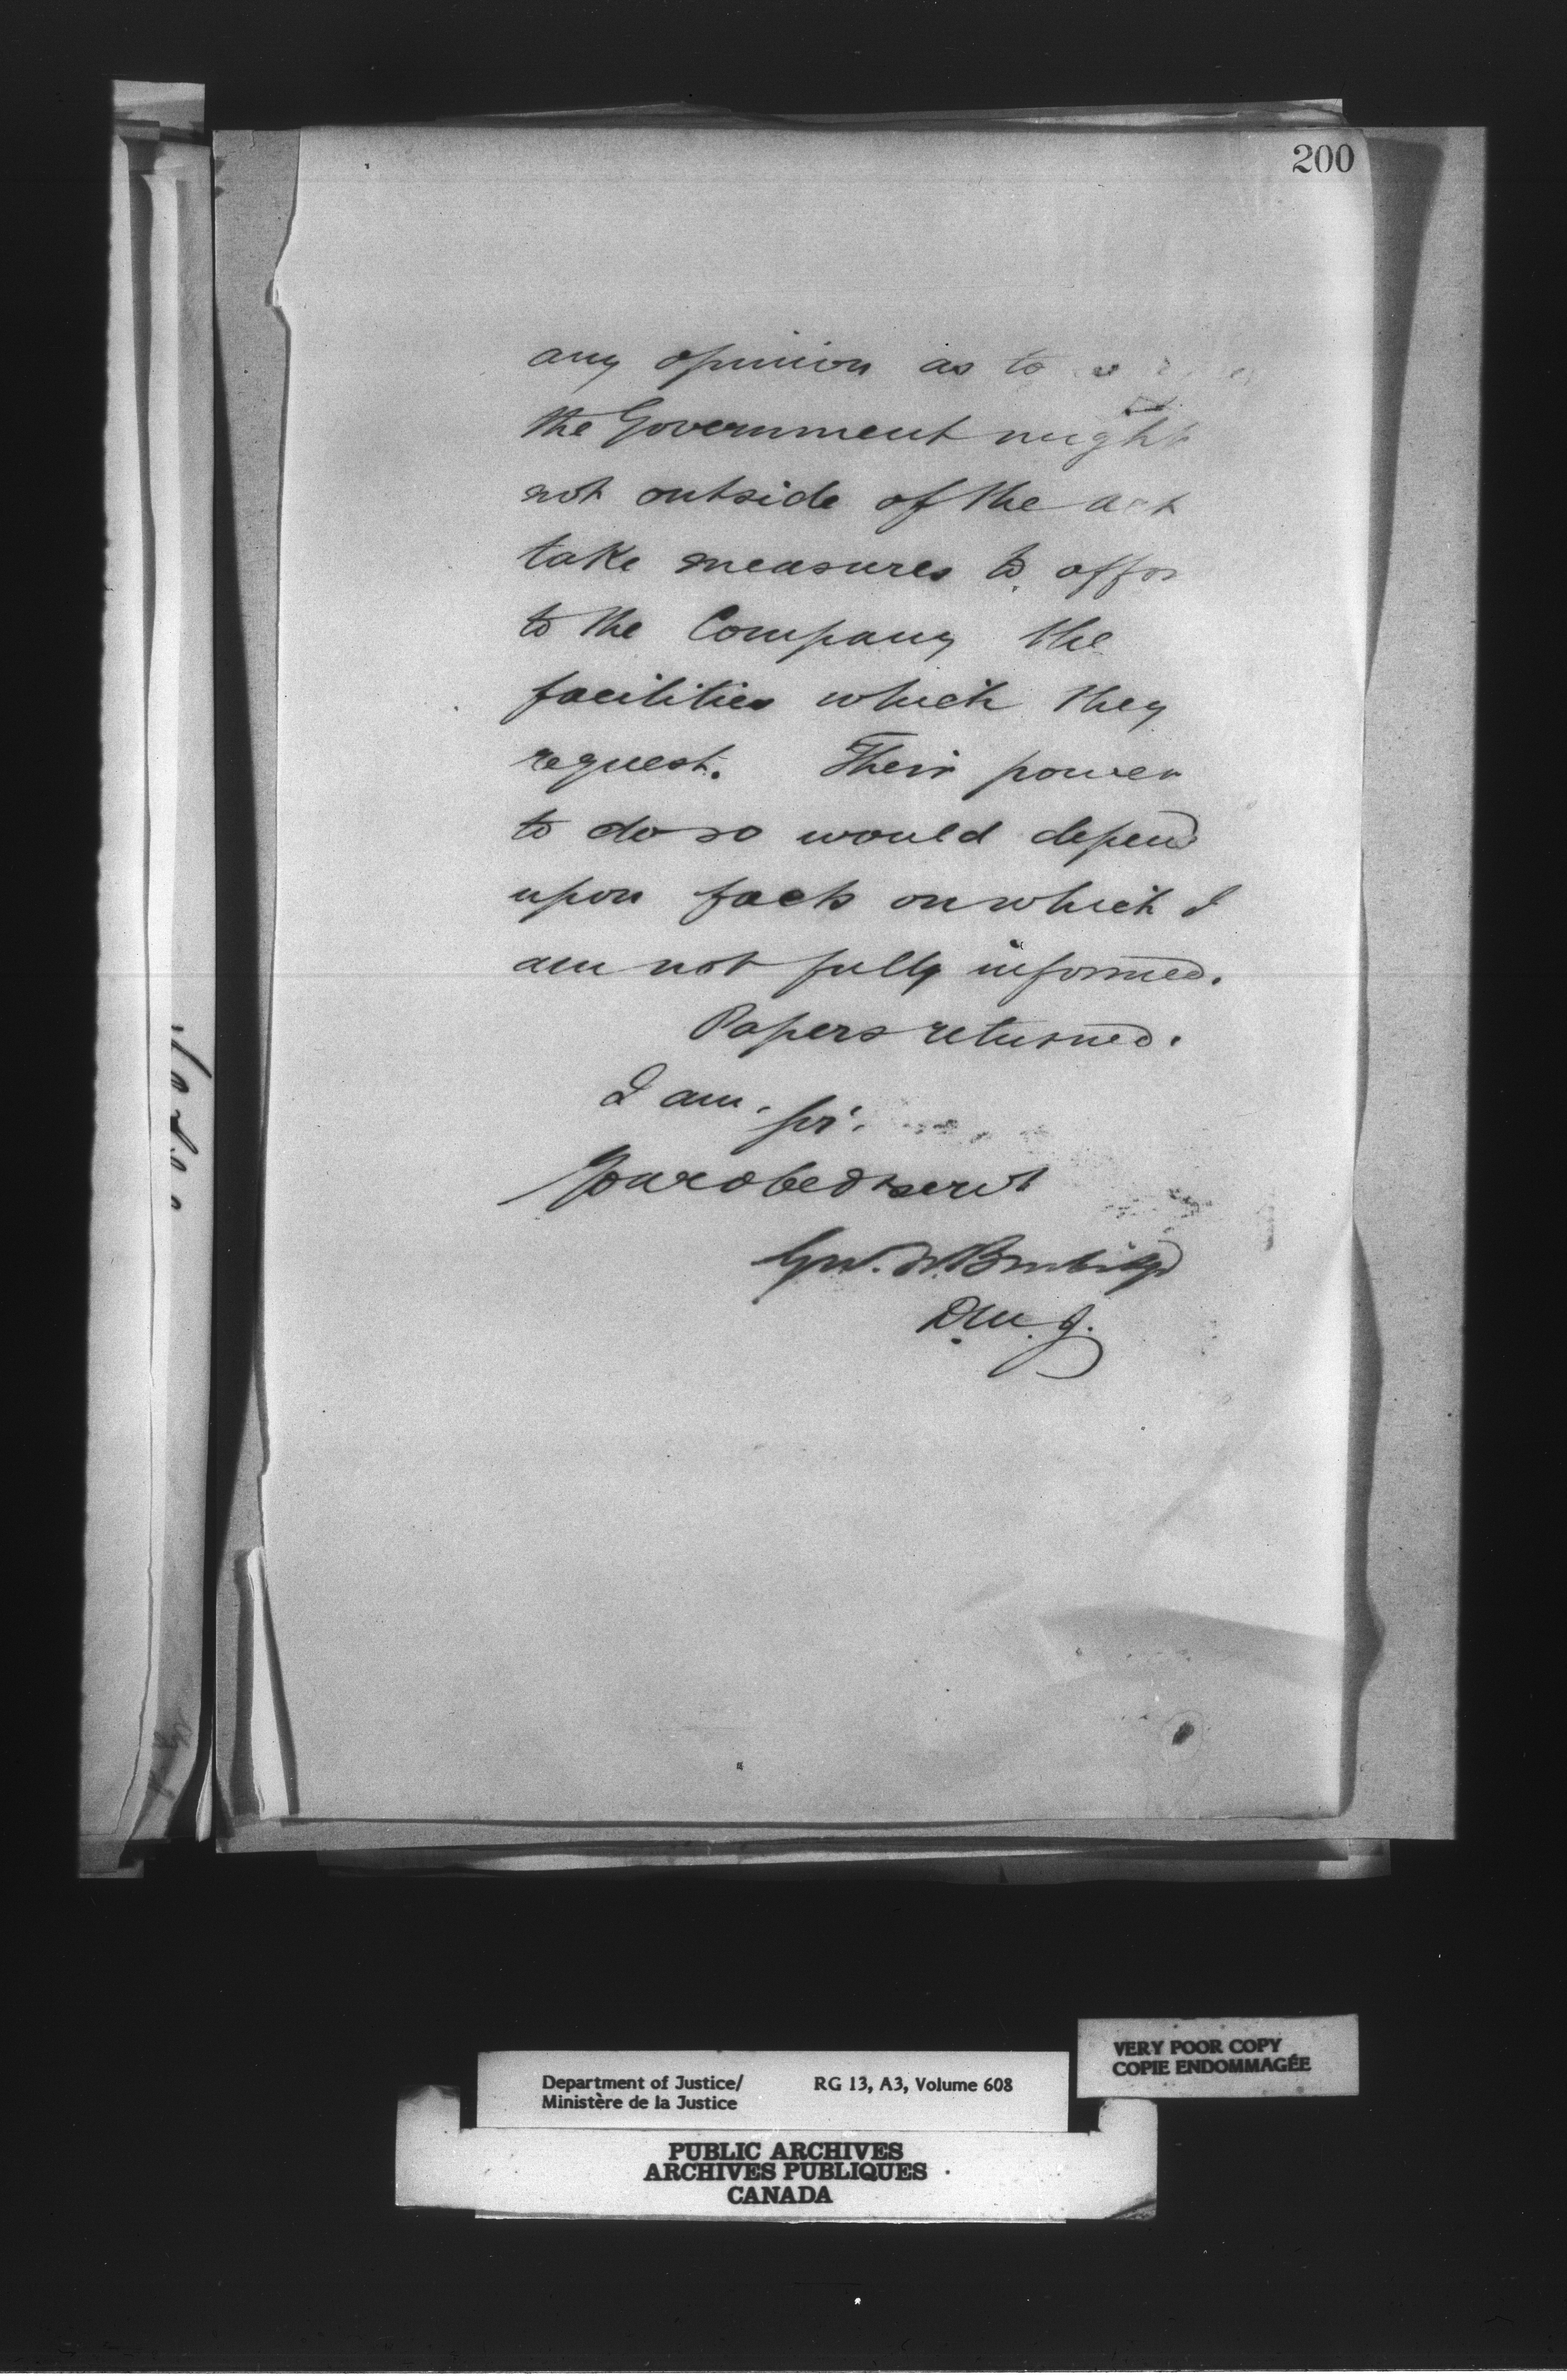 200
any opinion as to
the Government might
not outside of the act
take measures to affor
to the Company the
facilities which they
request. Their power
to do so would depend
upon facts on which I
am not fully informed.
Papers returned.
I am, Sir,
Your obedt servt
Geo. W. Burbidge
D.M.J.
VERY POOR COPY
COPIE ENDOMMAGÉE
Department of Justice/ RG 13, A3, Volume 608
Ministère de la Justice
PUBLIC ARCHIVES
ARCHIVES PUBLIQUES
CANADA